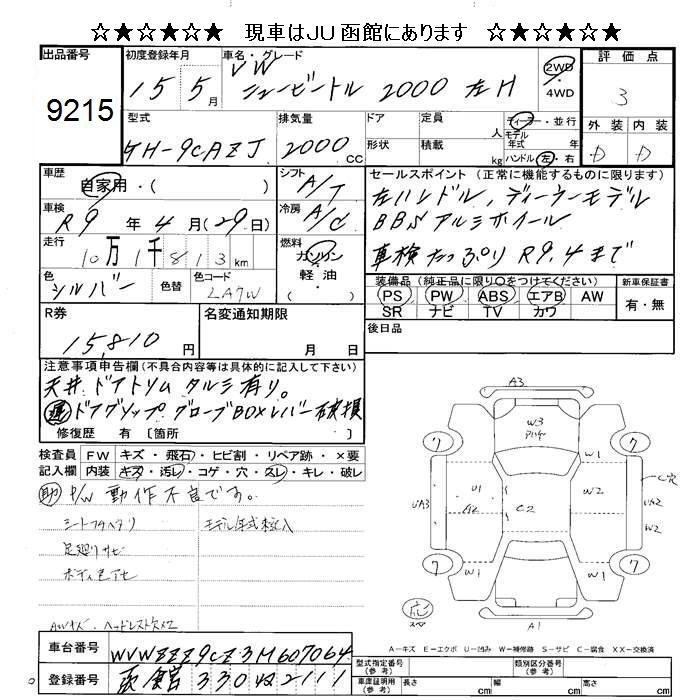 ☆★☆★☆★ 現車はJU函館にあります ☆★☆★☆★
出品番号
9215
初度登録年月
15 5月
車名・グレード
VW
ニュービートル 2000 左H
2WD
4WD
評価点
3
外装 内装
D D
型式
GH-9CAZJ
排気量
2000 CC
ドア
形状
定員 人
積載 kg
ディーラー・並行
モデル
年式 年
ハンドル 左・右
車歴
自家用・( )
車検
R9年4月(29日)
走行
10万1千813km
色
シルバー
色替
色コード
LA7W
シフト
A/T
冷房
A/C
燃料
ガソリン
軽油
( )
セールスポイント (正常に機能するものに限ります)
左ハンドル,ディーラーモデル
BBSアルミホイール
車検たっぷりR9.4まで
装備品 (純正品に限り○をつけてください)
PS PW ABS エアB AW
SR ナビ TV カワ
新車保証書
有・無
R券
15,810円
名変通知期限
月 日
後日品
注意事項申告欄 (不具合内容等は具体的に記入して下さい)
天井 ドアトリム タルミ有り。
運 ドアグリップ グローブBOXレバー破損
修復歴 有 〔箇所
検査員
記入欄
FW キズ・飛石・ヒビ割・リペア跡・×要
内装 キズ・汚レ・コゲ・穴・スレ・キレ・破レ
助 P/W 動作不良です。
シートフタヘタリ
モデル年式未記入
足廻りサビ
ボディ色アセ
AWキズ・ヘッドレスト欠×2
A3
W3
7 7
W1
U1
A2
C2
W2
UA3
C穴
UA2
W2
7 7
W1 W1
A1
応
スペア
A-キズ E-エクボ U-凹み W-補修跡 S-サビ C-腐食 XX-交換済
車台番号
WVWZZZ9CZ3M607064
登録番号
函館 330 2111
型式指定番号
(参考)
類別区分番号
(参考)
車庫証明用
(参考)
長さ cm
幅 cm
高さ cm